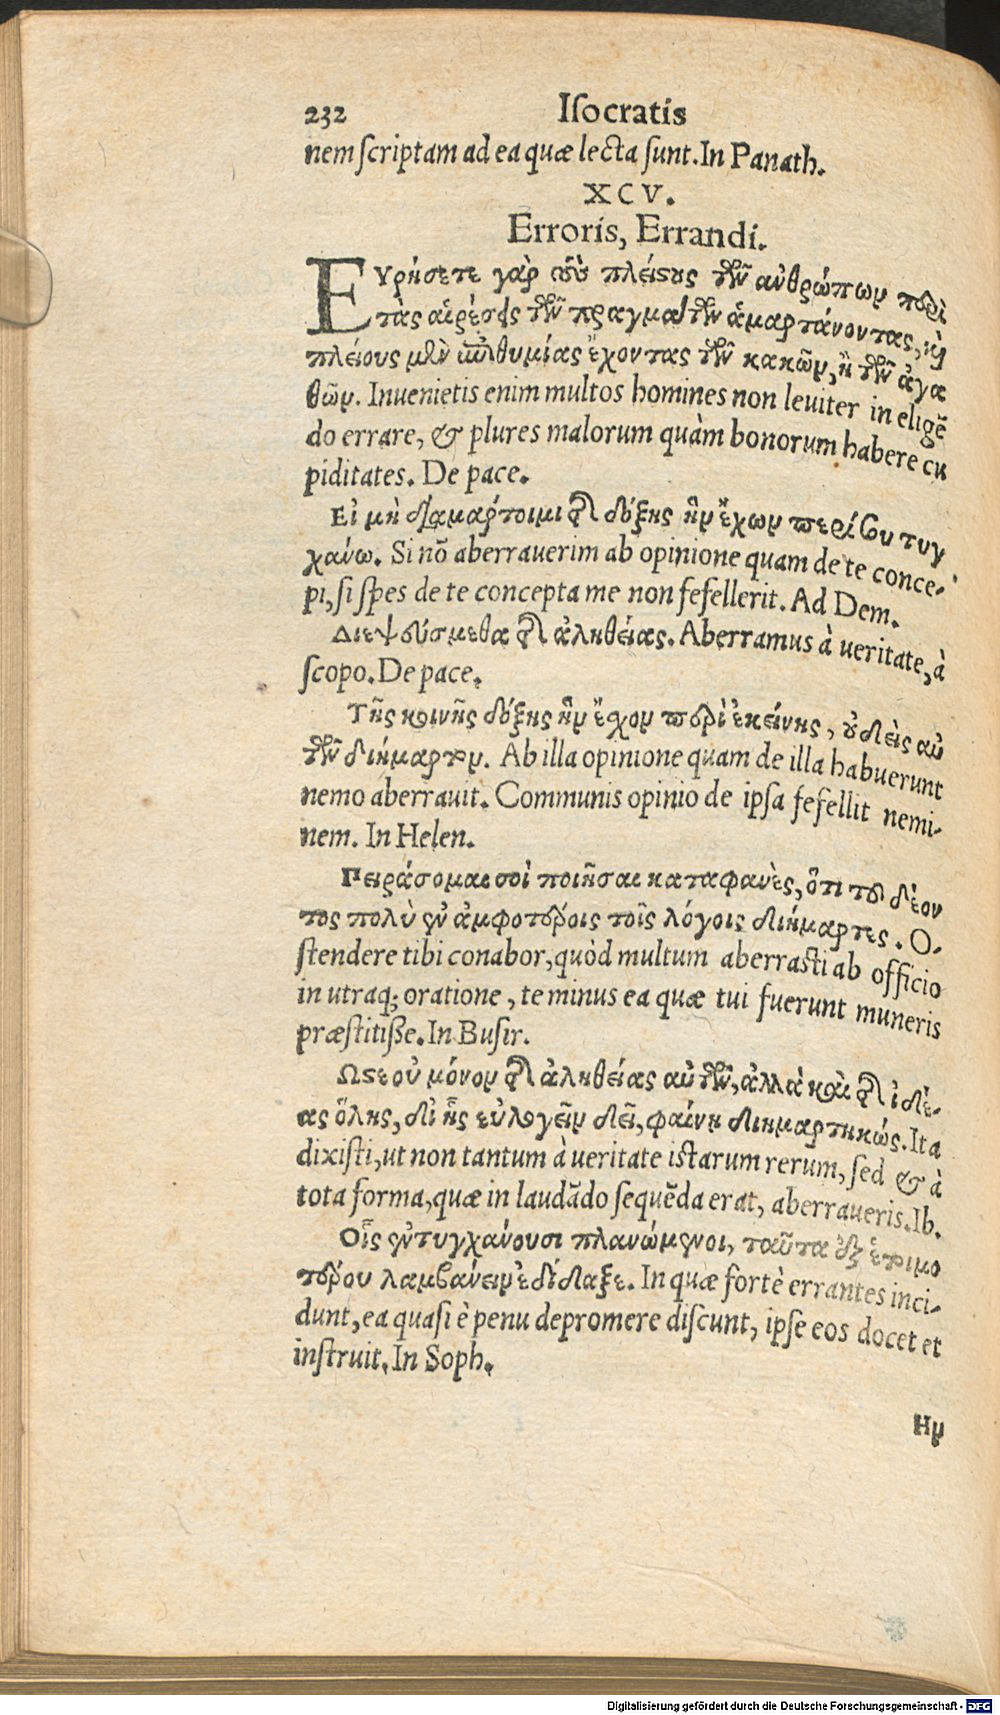 232 Iſocratis
nem ſcriptam ad ea quæ lecta ſunt. In Panath.
XCV.
Erroris, Errandi.
Εὑρήσετε γὰρ τοὺς πλείςους τῶν ἀνθρώπων περὶ
τὰς αἱρέσεις τῶν πραγμάτων ἁμαρτάνοντας, καὶ
πλείους μὲν ἐπιθυμίας ἔχοντας τῶν κακῶν, ἢ τῶν ἀγα
θῶν. Inuenietis enim multos homines non leuiter in eligē
do errare, & plures malorum quàm bonorum habere cu
piditates. De pace.
Εἰ μὴ διαμάρτοιμι τῆς δόξης ἣν ἔχων περί σου τυγ
χάνω. Si nō aberrauerim ab opinione quam de te conce-
pi, ſi ſpes de te concepta me non fefellerit. Ad Dem.
Διεψεύσμεθα τῆς ἀληθείας. Aberramus à ueritate, à
ſcopo. De pace.
Τῆς κοινῆς δόξης ἣν ἔχον περὶ ἐκείνης, οὐδεὶς αὐ
τῶν διήμαρτον. Ab illa opinione quam de illa habuerunt
nemo aberrauit. Communis opinio de ipſa fefellit nemi-
nem. In Helen.
Πειράσομαι σοὶ ποιῆσαι καταφανὲς, ὅτι τοῦ δέον
τος πολὺ ἐν ἀμφοτέροις τοῖς λόγοις διήμαρτες. O-
ſtendere tibi conabor, quòd multum aberraſti ab officio
in utraq; oratione, te minus ea quæ tui fuerunt muneris
præſtitiſſe. In Buſir.
Ωςε οὐ μόνον τῆς ἀληθείας αὐτῶν, ἀλλὰ καὶ τῆς ἰδέ-
ας ὅλης, δι' ἧς εὐλογεῖν δεῖ, φαίνῃ διημαρτηκώς. Ita
dixiſti, ut non tantum à ueritate iſtarum rerum, ſed & à
tota forma, quæ in laudādo ſequēda erat, aberraueris. Ib.
Οἷς ἐντυγχάνουσι πλανώμενοι, ταῦτα ἐξ ἑτοιμο
τέρου λαμβάνειν ἐδίδαξε. In quæ fortè errantes inci-
dunt, ea quaſi è penu depromere diſcunt, ipſe eos docet et
inſtruit. In Soph.
Ην
Digitalisierung gefördert durch die Deutsche Forschungsgemeinschaft - DFG